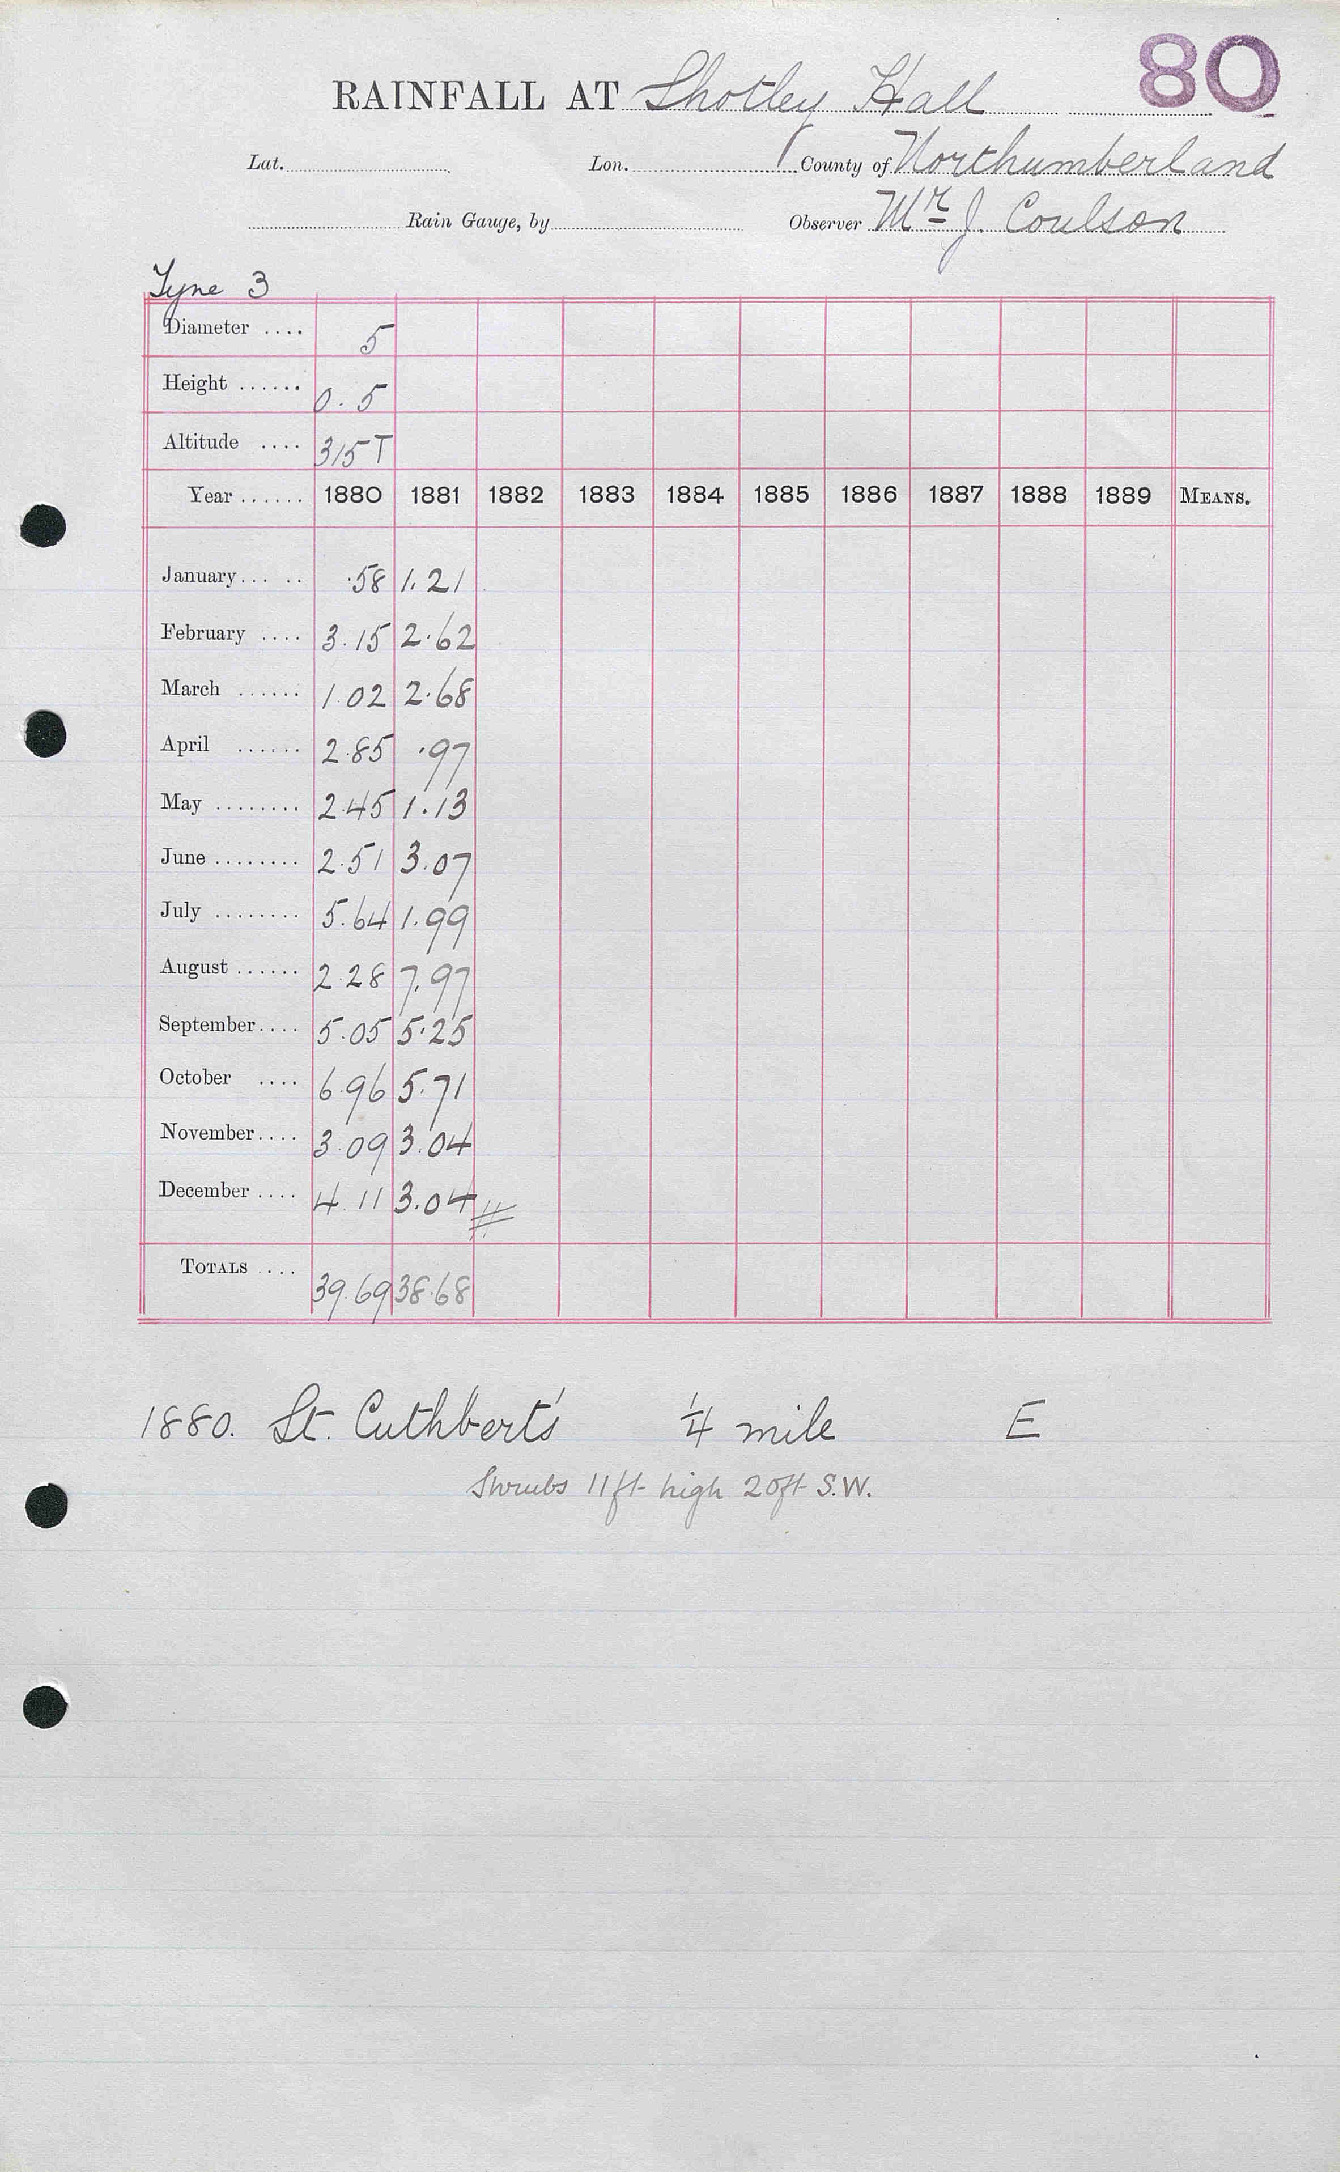 80
RAINFALL AT Shotley Hall
Lat. Lon. County of Northumberland
Rain Gauge, by Observer Mr. J. Coulson
Tyne 3
Diameter .... 5
Height ...... 0.5
Altitude .... 315T
Year ...... 1880 1881 1882 1883 1884 1885 1886 1887 1888 1889 MEANS.
January... .. .58 1.21
February .... 3.15 2.62
March ...... 1.02 2.68
April ...... 2.85 .97
May ........ 2.45 1.13
June ........ 2.51 3.07
July ........ 5.64 1.99
August ...... 2.28 7.97
September.... 5.05 5.25
October .... 6.96 5.71
November.... 3.09 3.04
December .... 4.11 3.04
TOTALS .... 39.69 38.68
1880. St. Cuthbert's 1/4 mile E
Shrubs 11ft high 20ft S.W.